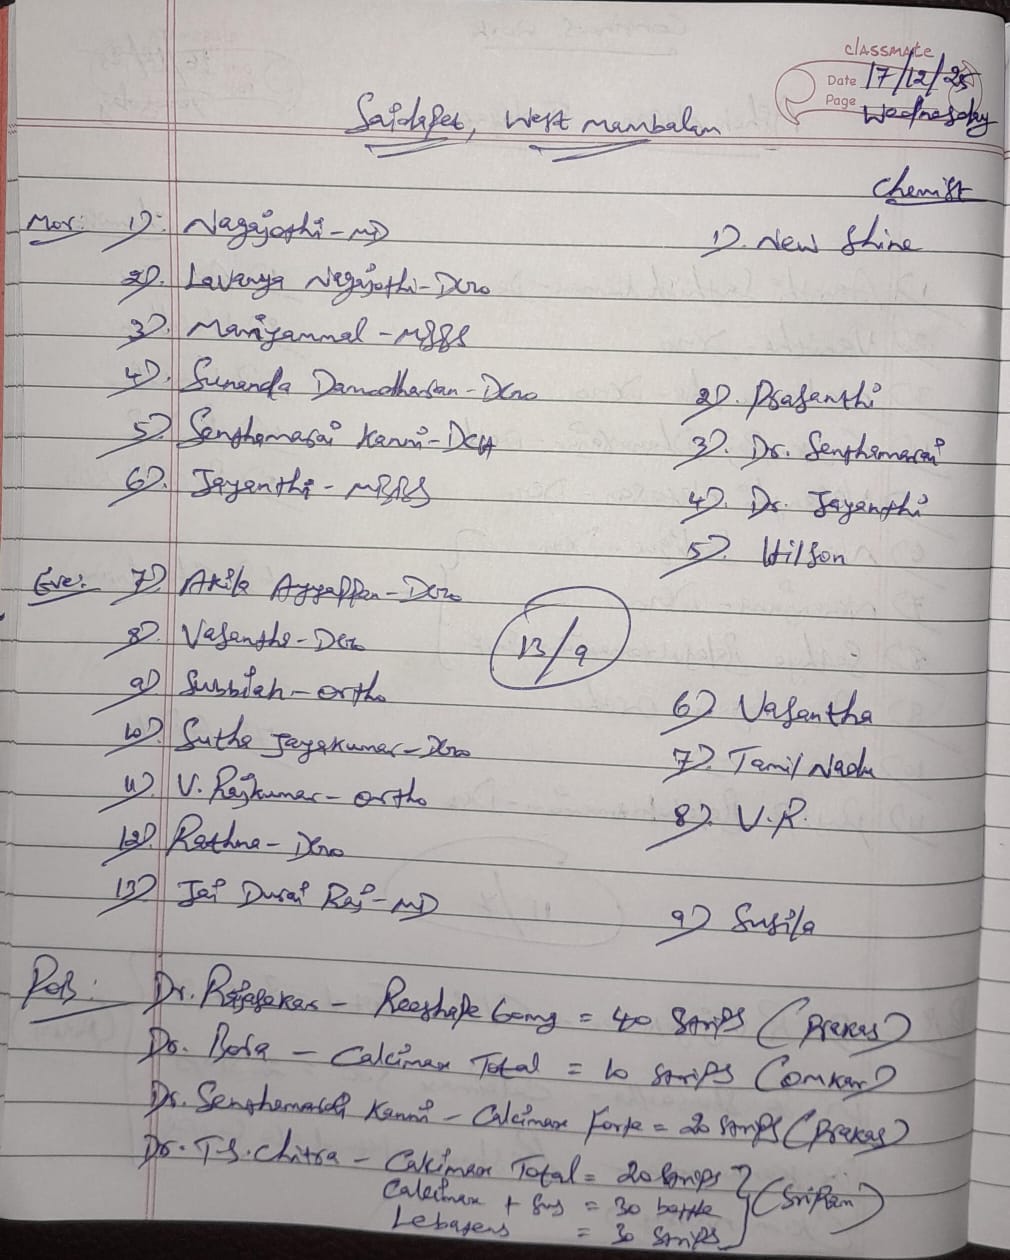 classmate
Date 17/12/25
Page Wednesday
Saidapet, West Mambalam
Chemist
Mor: 1). Nagajothi - MD
1). New Shine
2). Lavanya Nagajothi - DGO
3). Mariyammal - MBBS
4). Sunanda Damodharan - DGO
2). Prasanthi
5). Senthamarai Kanni - DCH
3). Dr. Senthamarai
6). Jayanthi - MBBS
4). Dr. Jayanthi
5). Wilson
Eve: 7). Akila Ayyappan - DGO
8). Vasantha - DGO
13/9
9) Subbiah - ortho
6) Vasantha
10). Sutha Jayakumar - DGO
7). Tamil Nadu
11). V. Rajkumar - ortho
8). V.R.
12). Rathna - DGO
13) Jai Durai Raj - MD
9) Susila
POB: Dr. Rajasekar - Reeshape 60mg = 40 strips (Prakas)
Dr. Bosa - Calcimax Total = 10 strips (Omkar)
Dr. Senthamarai Kanni - Calcimax Forte = 20 strips (Prakas)
Dr. T.S. Chitra - Calcimax Total = 20 strips
Calcimax + Sus = 30 bottle (Sripan)
= 30 strips